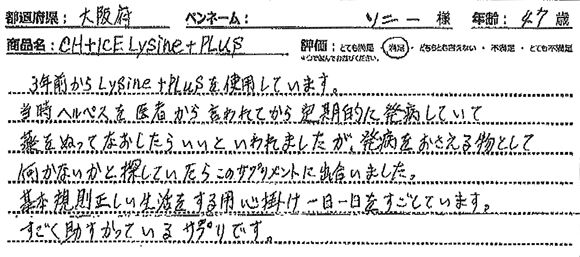 都道府県： 大阪府 ペンネーム： ソニー 様 年齢： 47 歳
商品名： CH+ICE Lysine+PLuS 評価： とても満足 ・ 満足 ・ どちらとも言えない ・ 不満足 ・ とても不満足
※○で囲んでお選びください。
3年前から Lysine+PLuSを使用しています。
当時ヘルペスを医者から言われてから定期的に発病していて
薬をぬってなおしたらいいといわれましたが、発病をおさえる物として
何かないかと探していたらこのサプリメントに出合いました。
基本規則正しい生活をする用心掛け一日一日をすごしています。
すごく助すかっているサプリです。